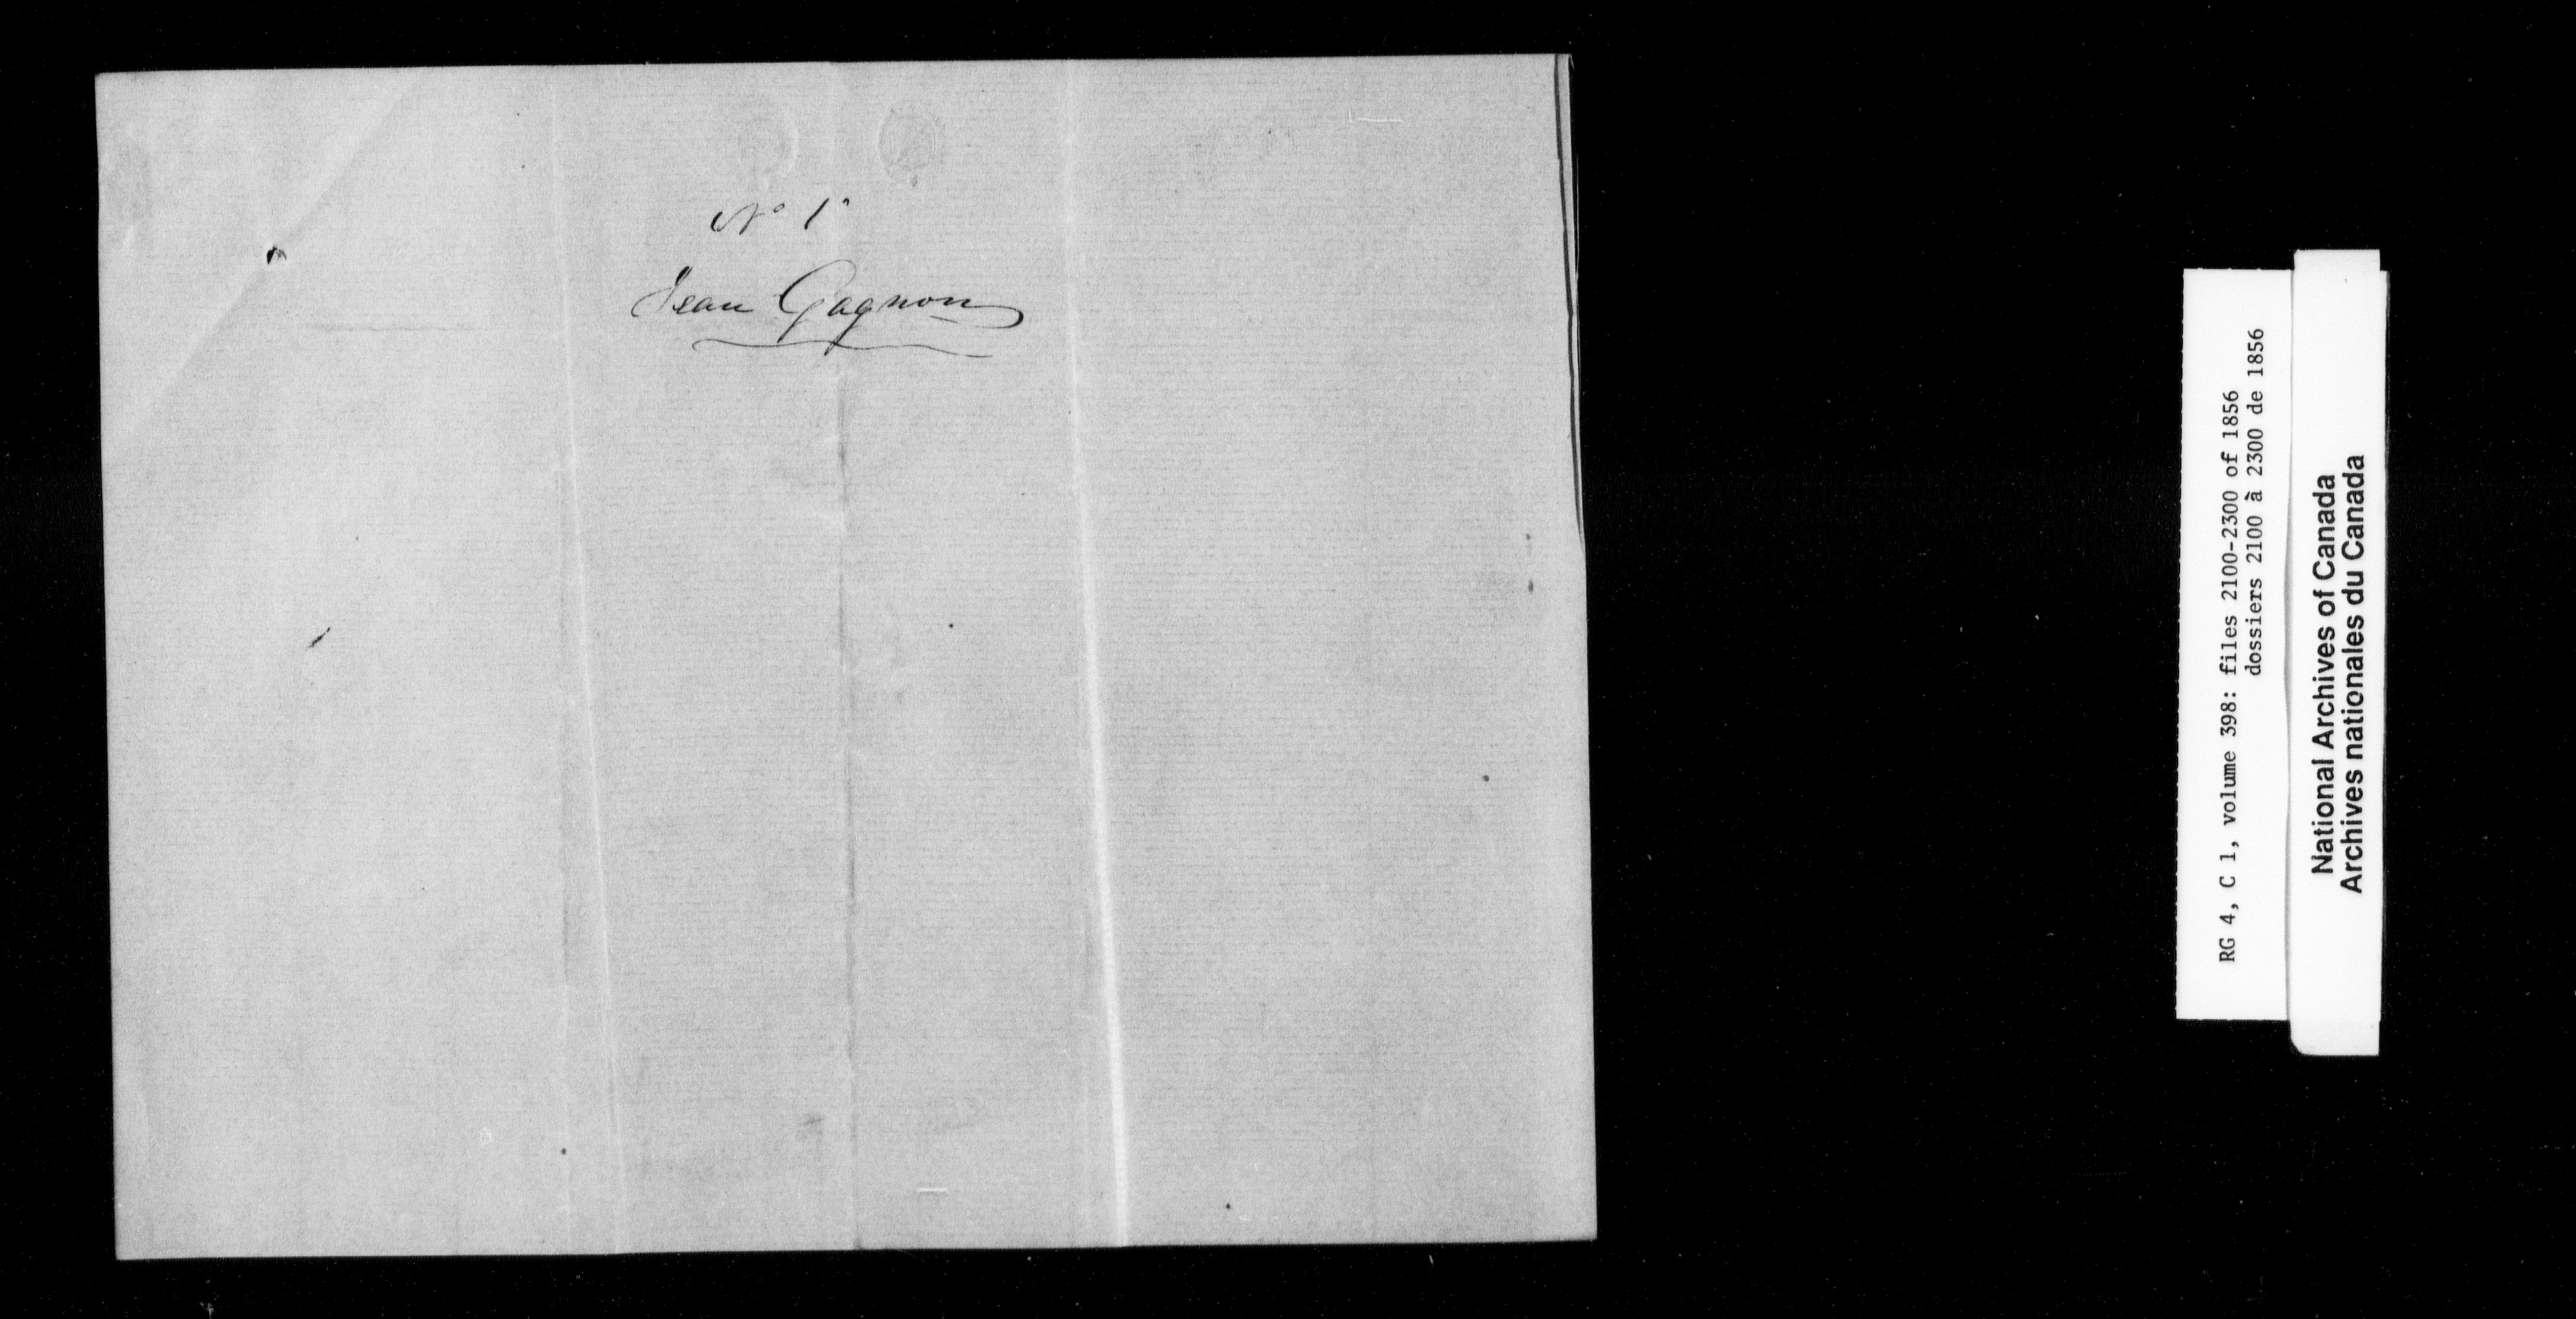 N° 1°
Jean Gagnon
RG 4, C 1, volume 398: files 2100-2300 of 1856
dossiers 2100 à 2300 de 1856
National Archives of Canada
Archives nationales du Canada